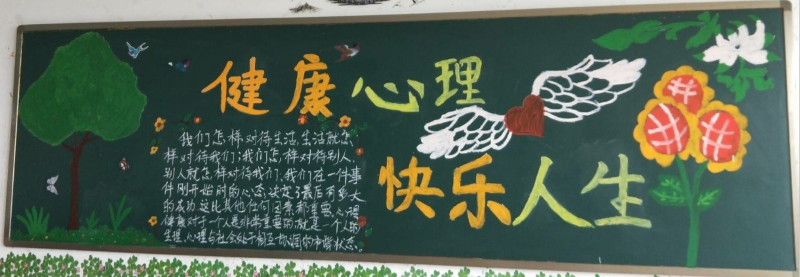 健康心理
快乐人生
我们怎样对待生活,生活就怎
样对待我们;我们怎样对待别人,
别人就怎样对待我们,我们在一件事
件刚开始时的心态决定了最后有多大
的成功,这比其他任何因素都重要。心理
健康对于一个人是非常重要的,就是一个人的
生理、心理与社会处于相互协调的和谐状态。